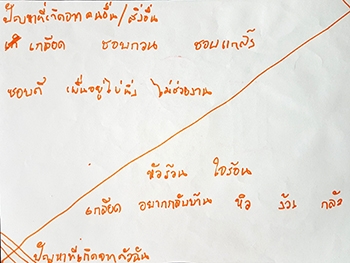 ปัญหาที่เกิดจาก คนอื่น/สิ่งอื่น
เกลียด ชอบกวน ชอบแกล้ง
ชอบตี เพื่อนอยู่ไม่นิ่ง ไม่ช่วยงาน
หัวร้อน ใจร้อน
เกลียด อยากกลับบ้าน หิว ง่วง กลัว
ปัญหาที่เกิดจากตัวฉัน